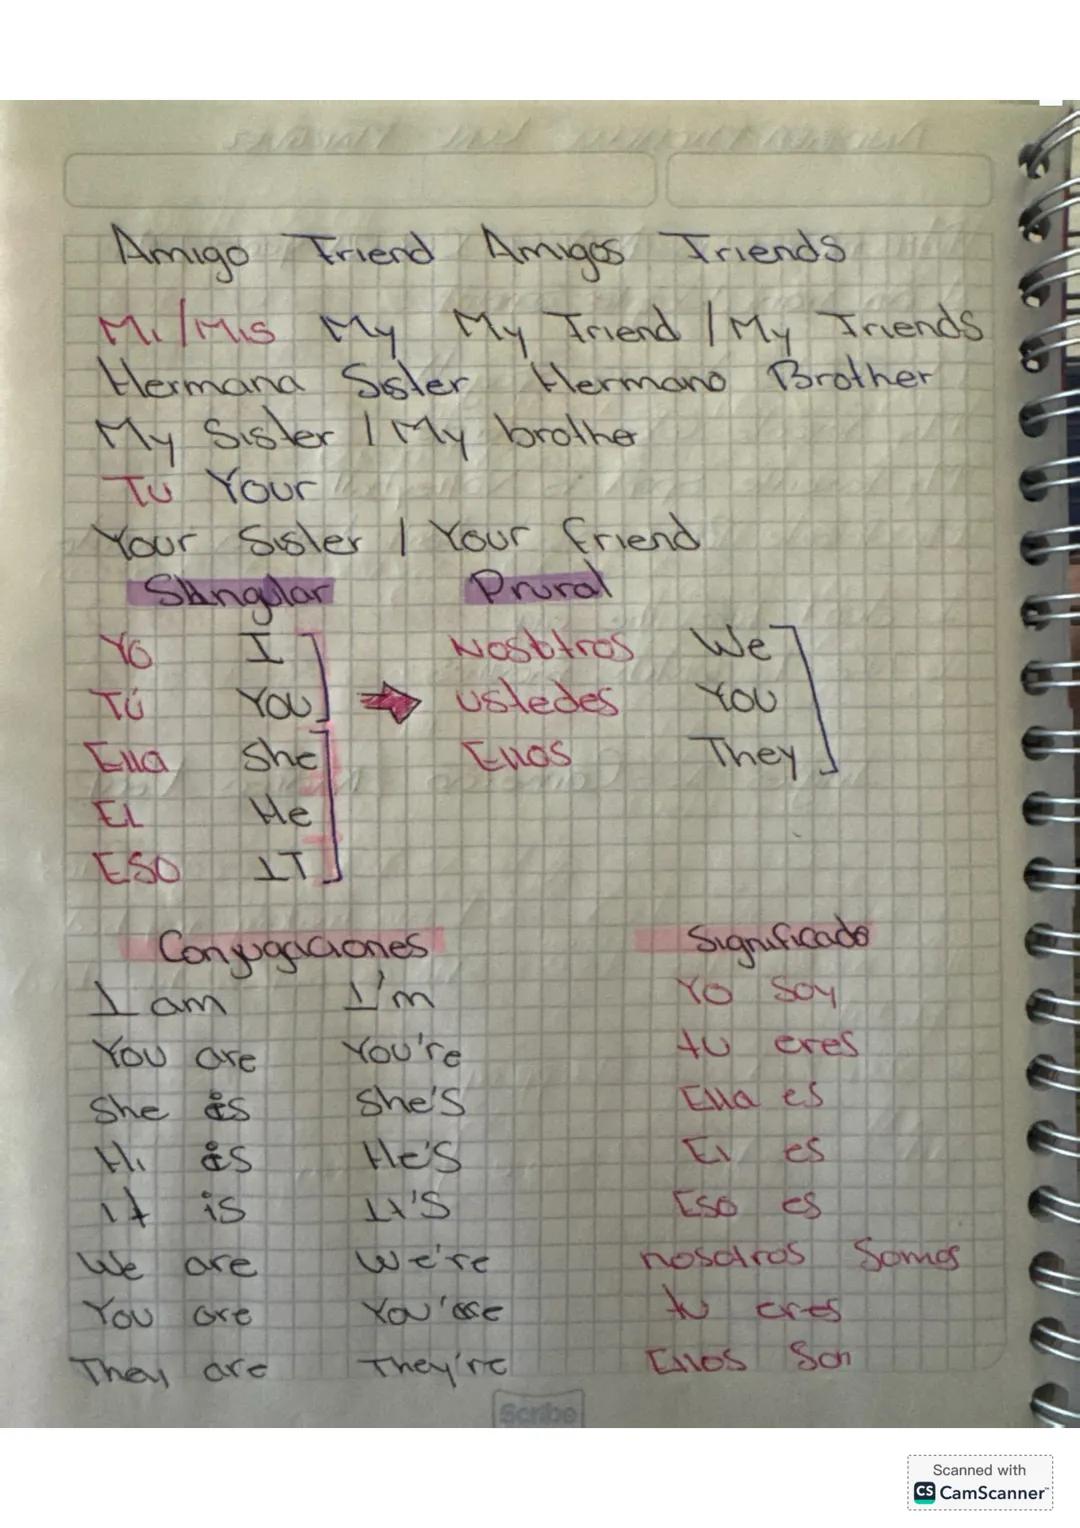 Amigo Friend Amigos Friends
Mi/Mis My My Friend / My Friends
Hermana Sister Hermano Brother
My Sister / My brother
Tu Your
Your Sister / Your friend
Singular Prural
Yo I Nosotros We
Tú You ustedes You
Ella She Ellos They
El He
ESO IT
Conjugaciones Significado
I am I'm Yo Soy
You are You're tu eres
She is She's Ella es
Hi is He's El es
it is It's Eso es
We are We're nosotros Somos
You are You're tu eres
They are They're Ellos Son
Scribe
Scanned with
CS CamScanner